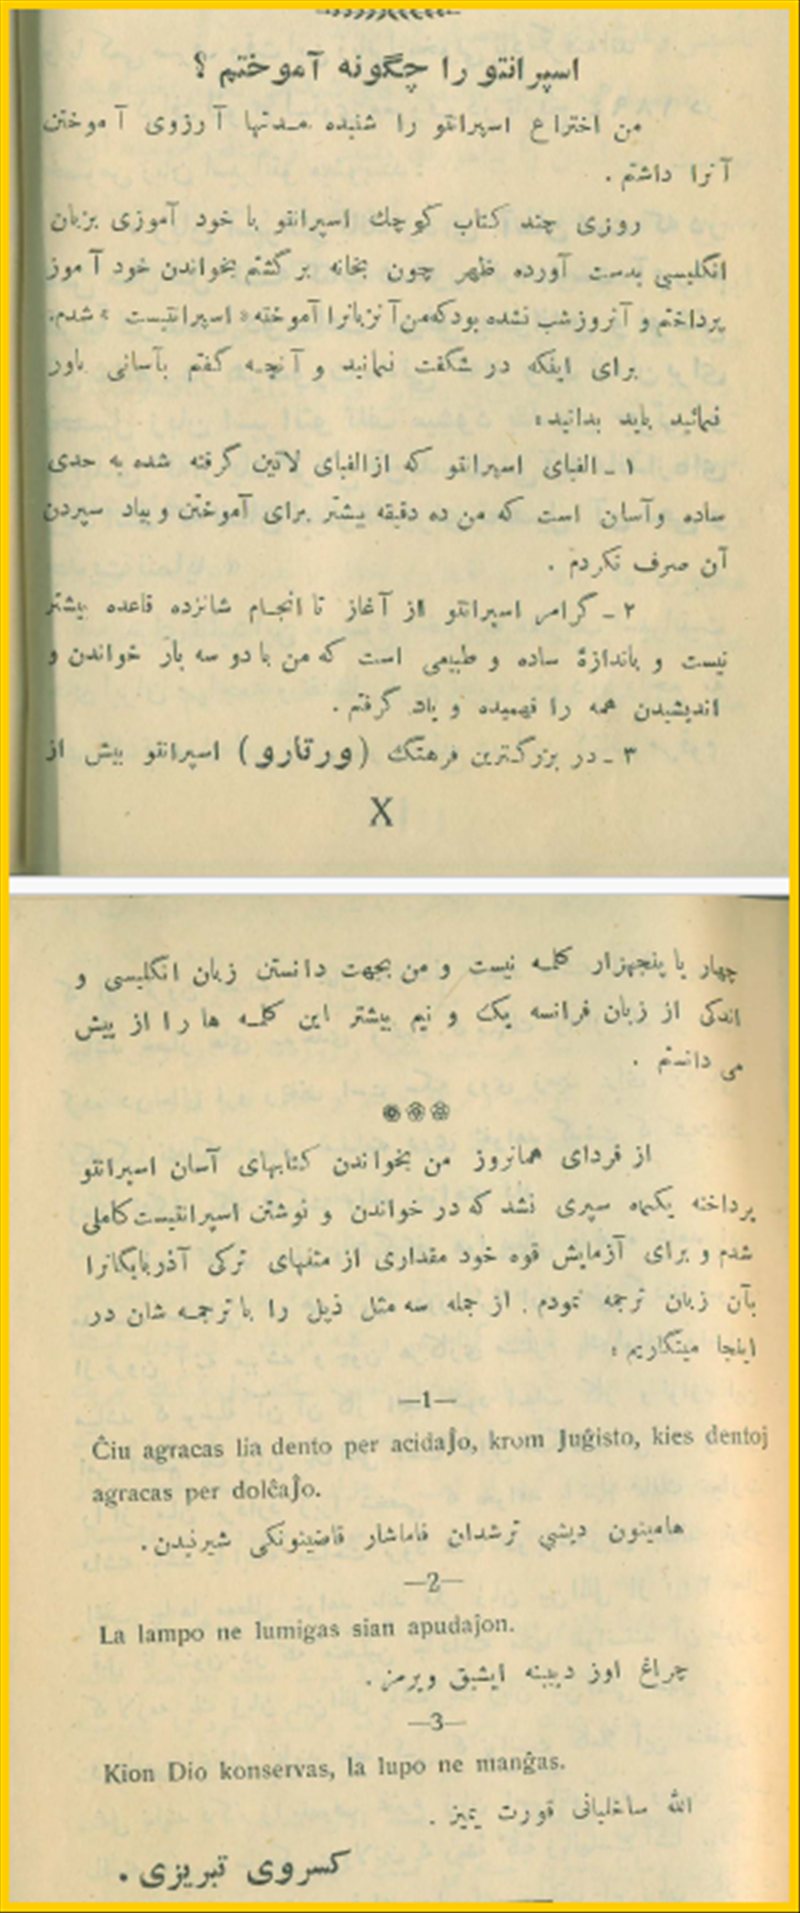 اسپرانتو را چگونه آموختم ؟
من اختراع اسپرانتو را شنیده مدتها آرزوی آموختن
آنرا داشتم .
روزی چند کتاب کوچک اسپرانتو با خود آموزی بزبان
انگلیسی بدست آورده ظهر چون بخانه برگشتم بخواندن خود آموز
پرداختم و آنروز شب نشده بود که من آنزبانرا آموخته « اسپرانتیست » شدم.
برای اینکه در شگفت نمانید و آنچه گفتم بآسانی باور
نمائید باید بدانید :
۱ ـ الفبای اسپرانتو که از الفبای لاتین گرفته شده به حدی
ساده و آسان است که من ده دقیقه بیشتر برای آموختن و بیاد سپردن
آن صرف نکردم .
۲ ـ گرامر اسپرانتو از آغاز تا انجام شانزده قاعده بیشتر
نیست و باندازهٔ ساده و طبیعی است که من با دو سه بار خواندن و
اندیشیدن همه را فهمیده و یاد گرفتم .
۳ ـ در بزرگترین فرهنگ (ورتارو) اسپرانتو بیش از
X
چهار یا پنجهزار کلمه نیست و من بجهت دانستن زبان انگلیسی و
اندکی از زبان فرانسه یک و نیم بیشتر این کلمه ها را از پیش
می دانستم .
از فردای همانروز من بخواندن کتابهای آسان اسپرانتو
پرداخته یکماه سپری نشد که در خواندن و نوشتن اسپرانتیست کاملی
شدم و برای آزمایش قوه خود مقداری از مثلهای ترکی آذربایگانرا
بآن زبان ترجمه نمودم . از جمله سه مثل ذیل را با ترجمه شان در
اینجا مینگاریم :
—1—
Ĉiu agracas lia dento per acidaĵo, krom Juĝisto, kies dentoj
agracas per dolĉaĵo.
هامینون دیشی ترشدان قاماشار قاضینونکی شیرنیدن .
—2—
La lampo ne lumigas sian apudaĵon.
چراغ اوز دیبینه ایشیق ویرمز .
—3—
Kion Dio konservas, la lupo ne manĝas.
الله ساخلیانی قورت یمیز .
کسروی تبریزی .